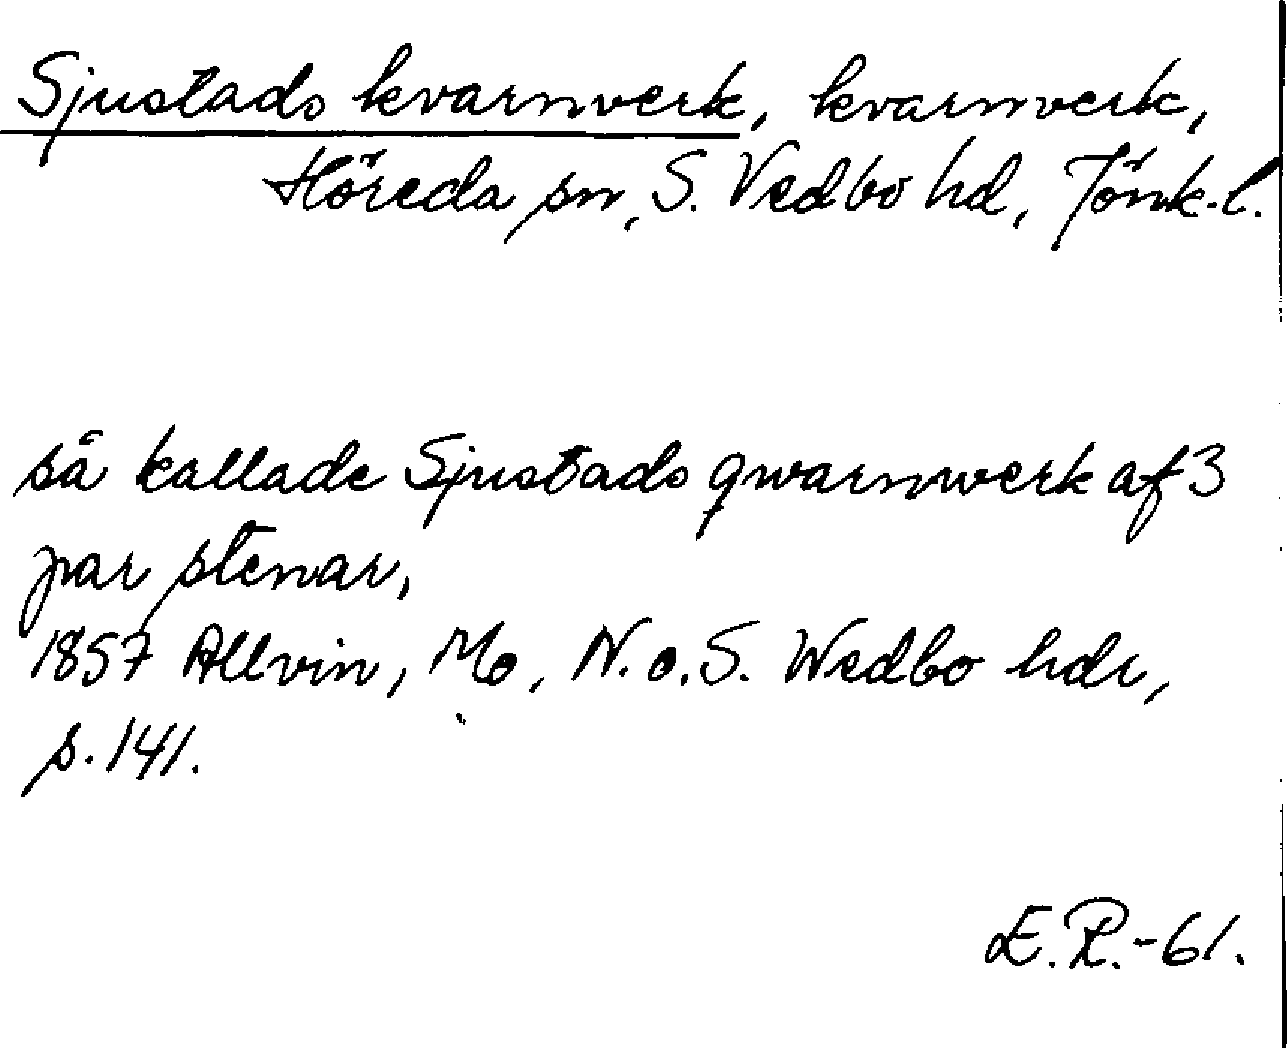 Sjustads kvarnverk, kvarnverk,
Höreda sn, S. Vedbo hd, Jönk. l.
så kallade Sjustads qwarnwerk af 3
par stenar,
1857 Allvin, Mo, N. o. S. Wedbo hdr,
s. 141.
E. P. -61.